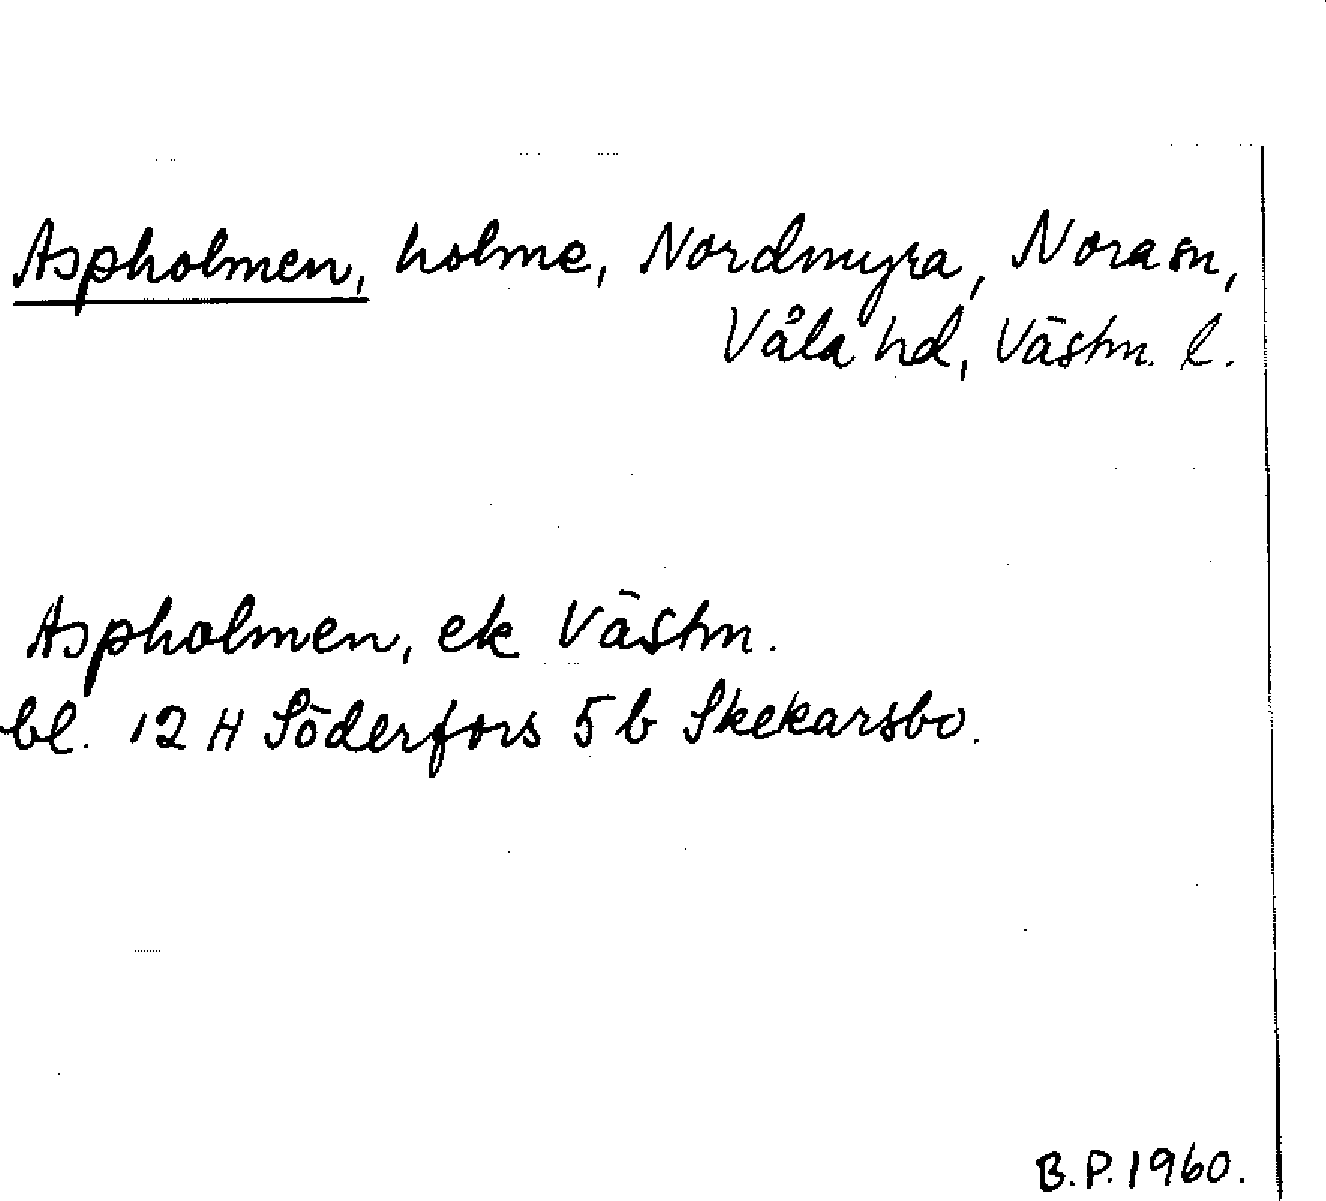 Aspholmen, holme, Nordmyra, Nora sn,
Våla hd, Västm. l.
Aspholmen, ek Västm.
bl. 12 H Söderfors 5 b Skekarsbo.
B.P. 1960.